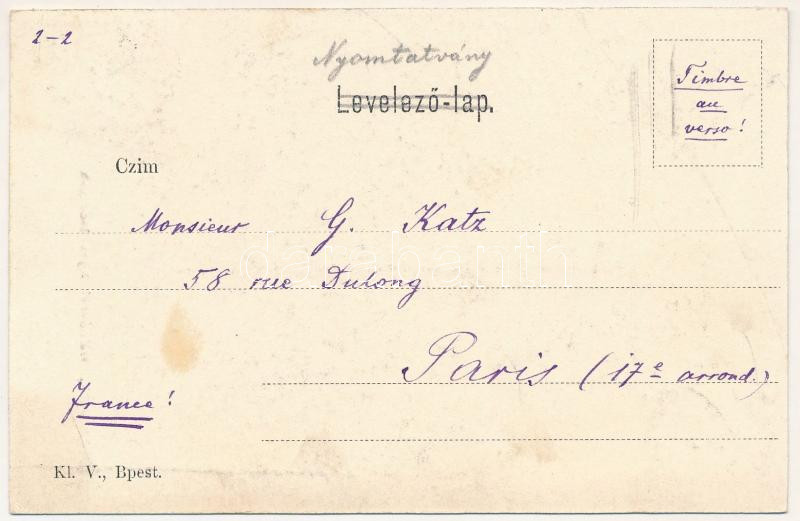 2-2
Nyomtatvány
Levelező-lap.
Timbre
au
verso!
Czim
Monsieur G. Katz
58 rue Dulong
Paris (17e arrond.)
France!
Kl. V., Bpest.